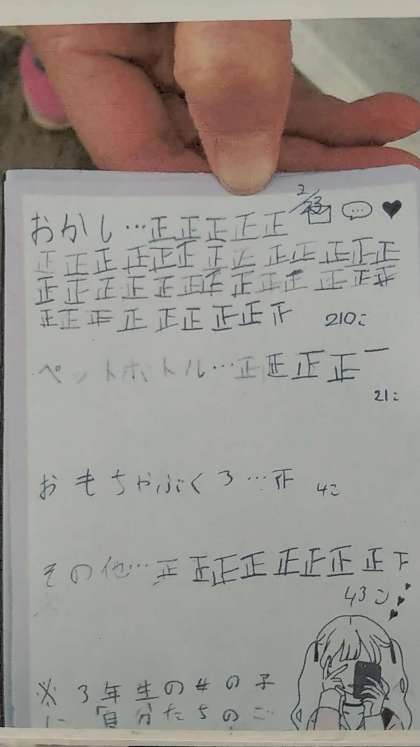 おかし…正正正正正
正正正正正正正正正正正正正
正正正正正正正正正正正正正
正正正正正正正正正 210こ
ペットボトル…正正正正一
21こ
おもちゃぶくろ…正 4こ
その他…正正正正正正正正下
43こ
※3年生の女の子
に「自分たちのご